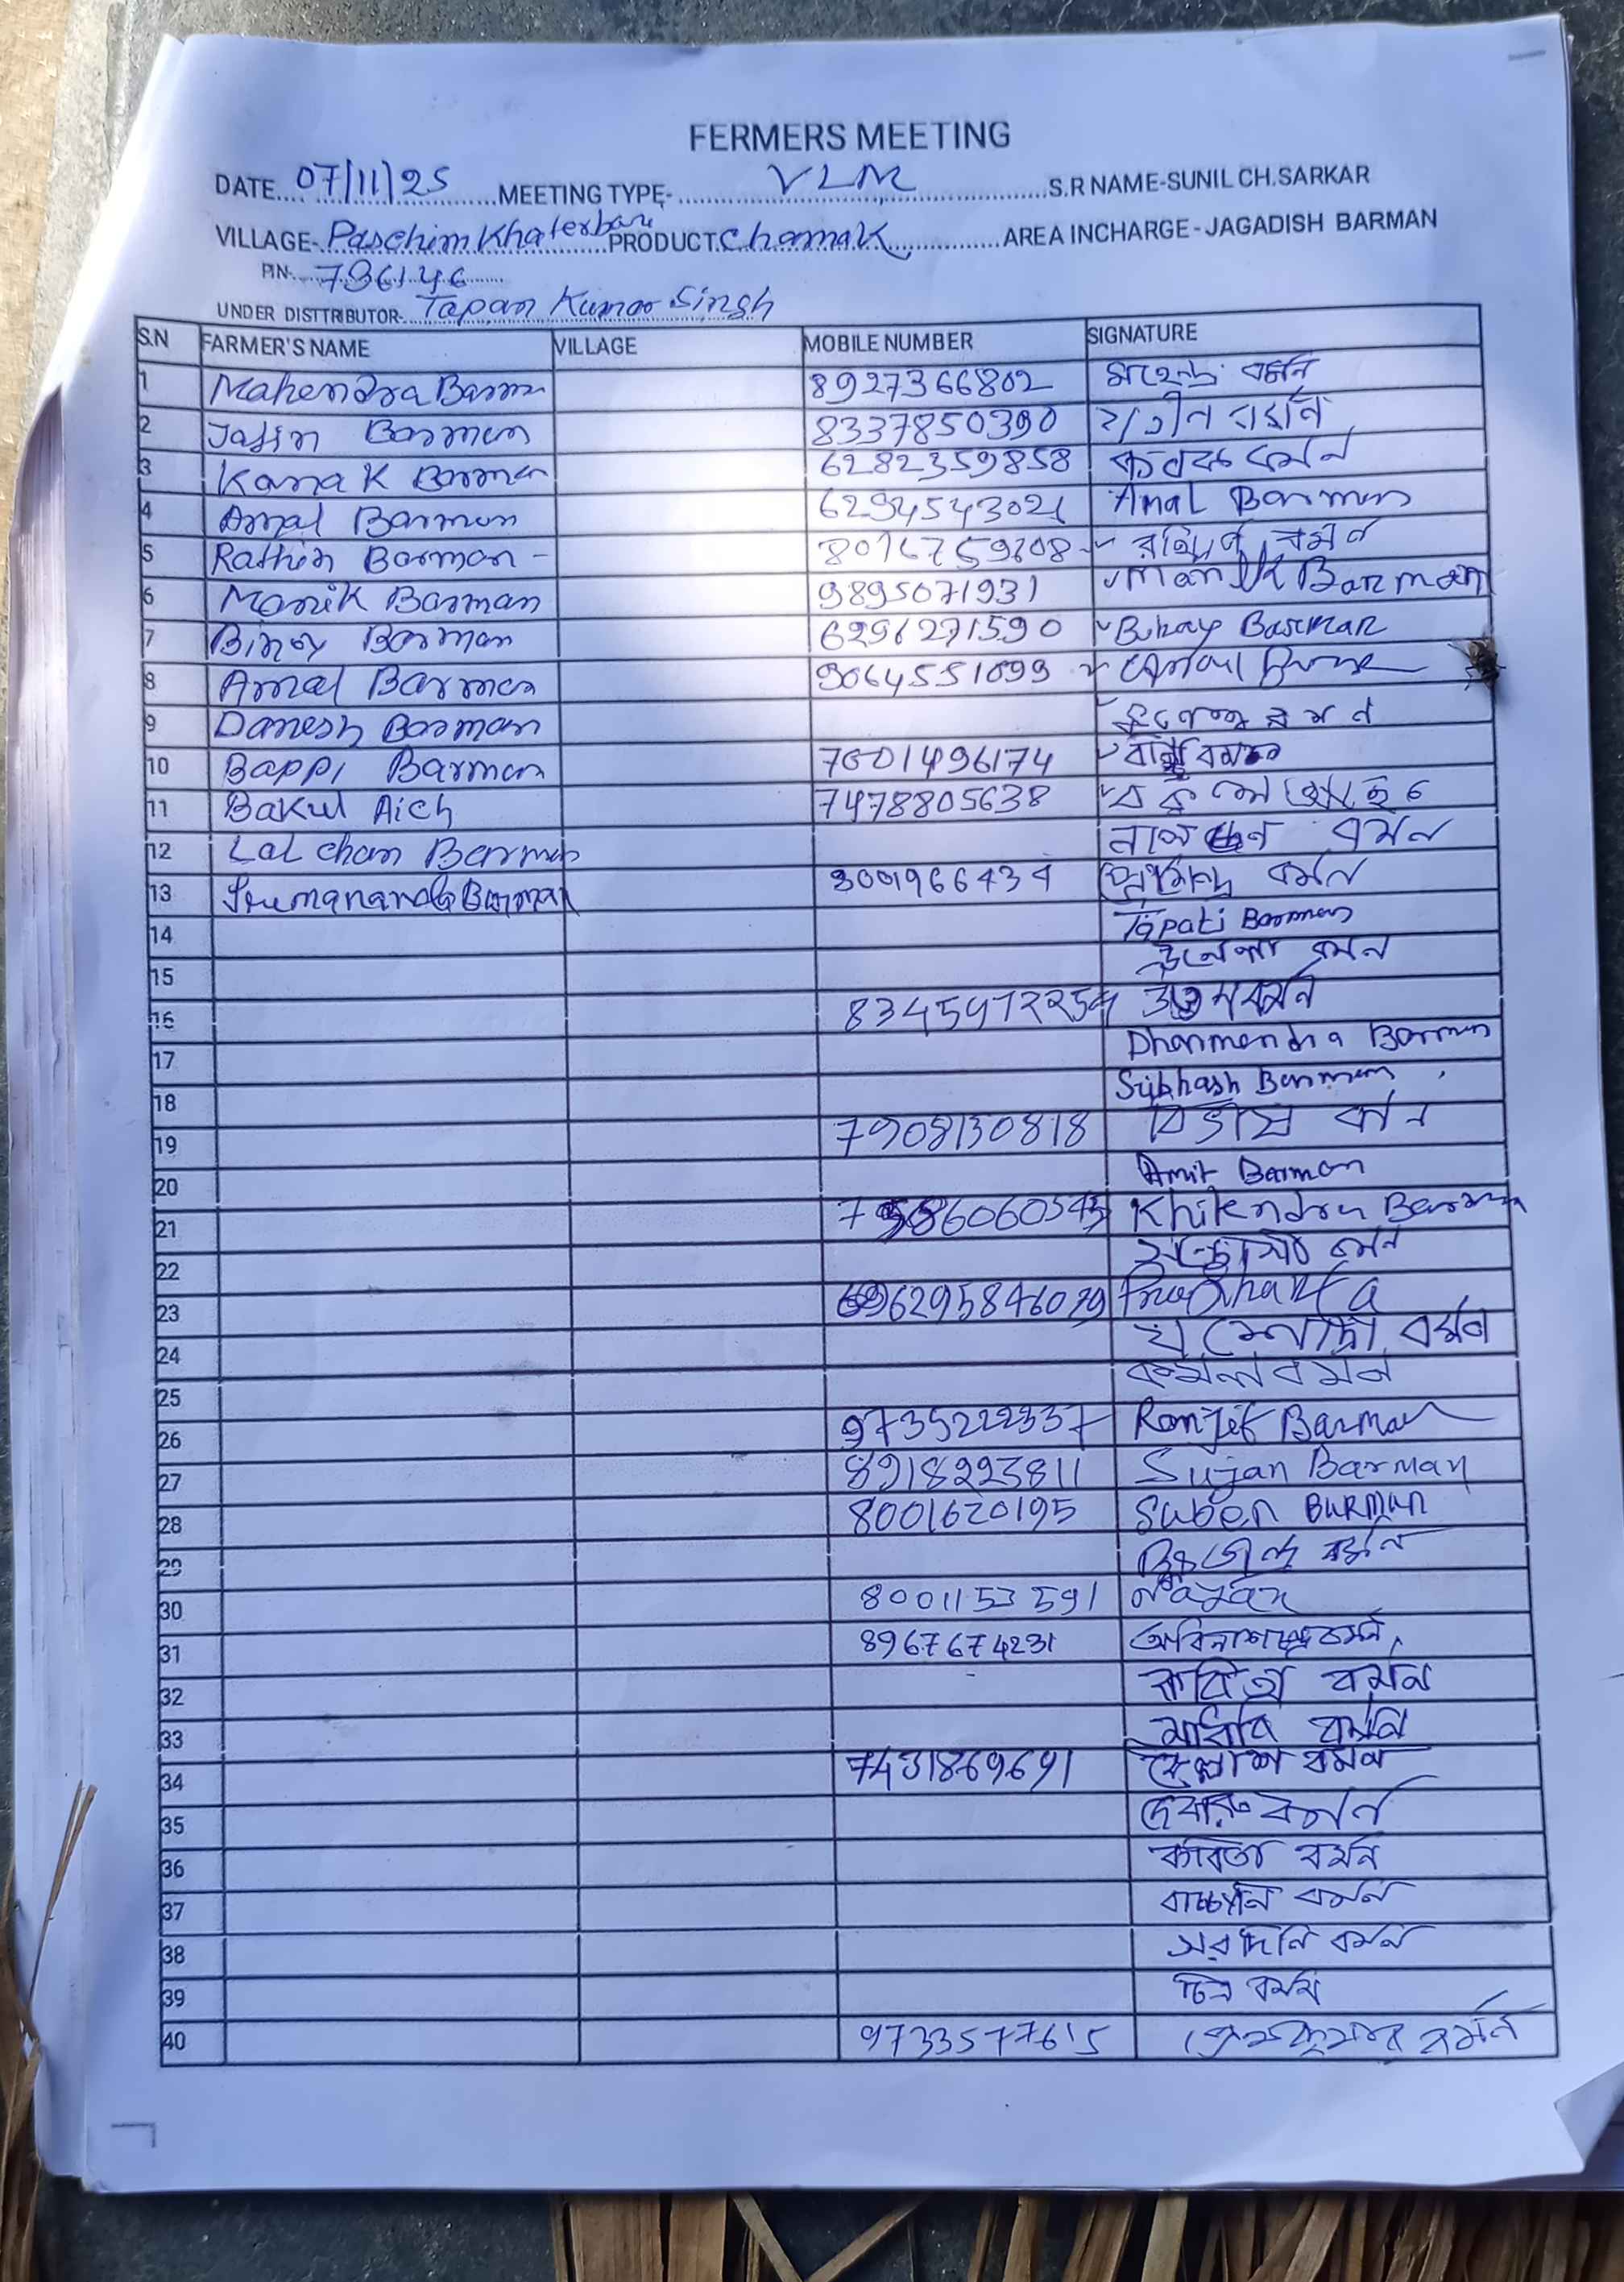 FERMERS MEETING
DATE.... 07/11/25 ......MEETING TYPE-.......... VLM ..............S.R NAME-SUNIL CH.SARKAR
VILLAGE-.Paschim Khaterbari PRODUCT.Chamak..............AREA INCHARGE - JAGADISH BARMAN
PIN-....736146......
UNDER DISTTRIBUTOR-..Tapan Kumar Singh
S.N FARMER'S NAME VILLAGE MOBILE NUMBER SIGNATURE
1 Mahendra Barman 8927366802 মহেন্দ্র বর্মন
2 Jatin Barman 8337850390 যতীন বর্মন
3 Kanak Barman 6282359858 কনক বর্মন
4 Amal Barman 6294543021 Amal Barman
5 Rathin Barman - রথিন বর্মন
6 Manik Barman 9895071931 Manik Barman
7 Binoy Barman 6296271590 Binay Barman
8 Amal Barman 9064551099
9 Danesh Barman বর্মন
10 Bappi Barman 7601496174
11 Bakul Aich 7478805638 বকুল আইচ
12 Lal chan Barman বর্মন
13 Barman বর্মন
14 Tapati Barman
15 বর্মন
16 উত্তম বর্মন
17 Dharmendra Barman
18 Subhash Barman
19 7908130818 বিভাস বর্মন
20 Amit Barman
21 Khitendra Barman
22 বর্মন
23
24 যশোদা বর্মন
25 কমলা বর্মন
26 9735222337 Ranjit Barman
27 8918223811 Sujan Barman
28 8001620195 Suben BURMAN
29 বর্মন
30 8001153591 Nayan
31 8967674231 অবিনাশচন্দ্র বর্মন
32 কবিতা বর্মন
33 মাধবি বর্মন
34 7431869691 বর্মন
35 দেবারু বর্মন
36 কবিতা বর্মন
37 বর্মন
38 বর্মন
39 বর্মন
40 9733577615 প্রেমকুমার বর্মন